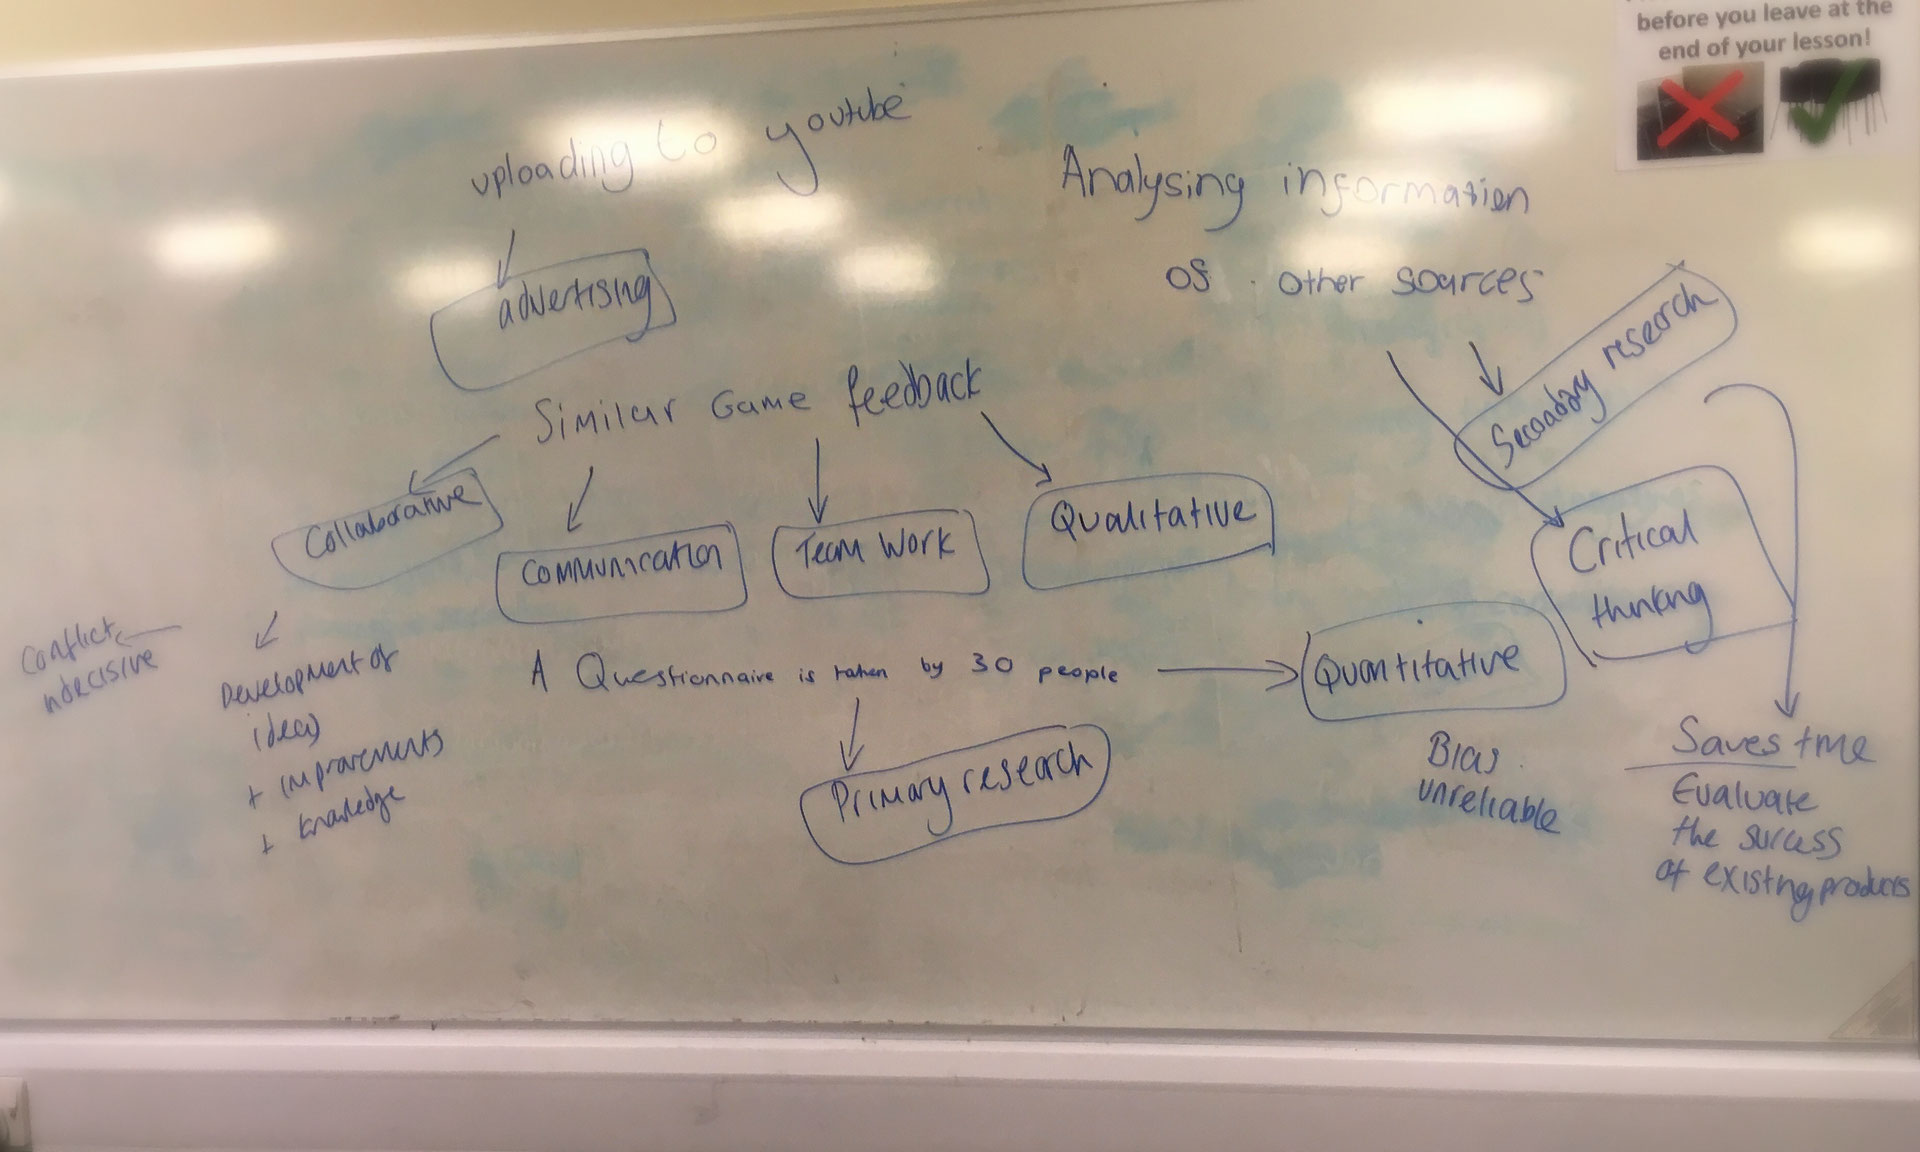 before you leave at the
end of your lesson!
uploading to youtube
advertising
Analysing information
of other sources
Secondary research
Similar Game feedback
Collaborative
Communication
Team Work
Qualitative
Critical
thinking
Conflict
indecisive
Development of
ideas
+ improvements
+ knowledge
A Questionnaire is taken by 30 people
Quantitative
Primary research
Bias
unreliable
Saves time
Evaluate
the success
of existing products